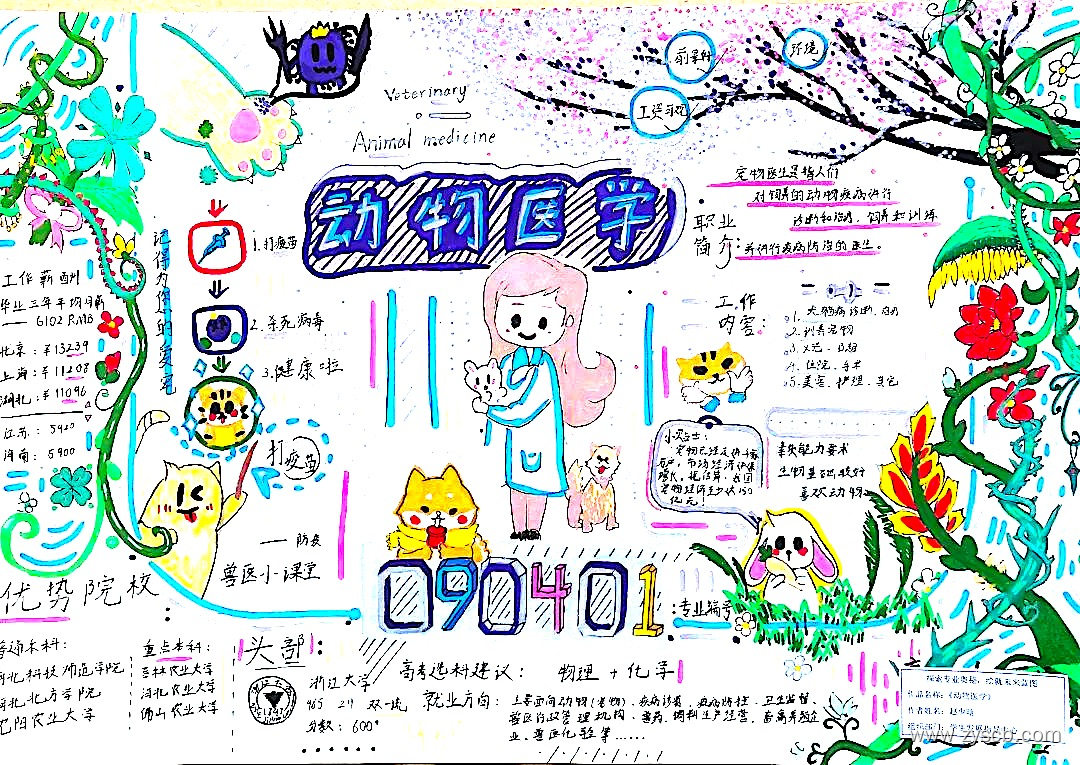 Veterinary
Animal medicine
动物医学
前景
环境
工资
宠物医生是指人们
对饲养的动物疾病进行
诊断和治疗、饲养和训练
并进行疾病防治的医生。
职业
简介:
记得为您的爱宠
1.打疫苗
2.杀死病毒
3.健康啦
打疫苗
—— 防疫
兽医小课堂
工作薪酬
毕业三年平均月薪
—— 6102 RMB
北京:¥13239
上海:¥11208
湖北:¥11096
江苏:5920
河南:5900
工作
内容:
2.训养宠物
4.住院、手术
5.美容、护理、寄包
小贴士:
素质能力要求
生物基础较好
喜欢动物
090401
:专业编号
优势院校
普通本科:
河北科技师范学院
河北北方学院
沈阳农业大学
重点本科:
吉林农业大学
河北农业大学
佛山农业大学
头部:
浙江大学
985 211 双一流
分数:600+
1897
高考选科建议: 物理+化学
就业方向:
主要面向动物(宠物)、疾病诊断、疾病防控、卫生监督、
兽医行政管理机构、兽药、饲料生产经营、畜禽养殖企
业、兽医化验等……
探索专业奥秘,绘就未来蓝图
作品名称:《动物医学》
www.zyssb.com